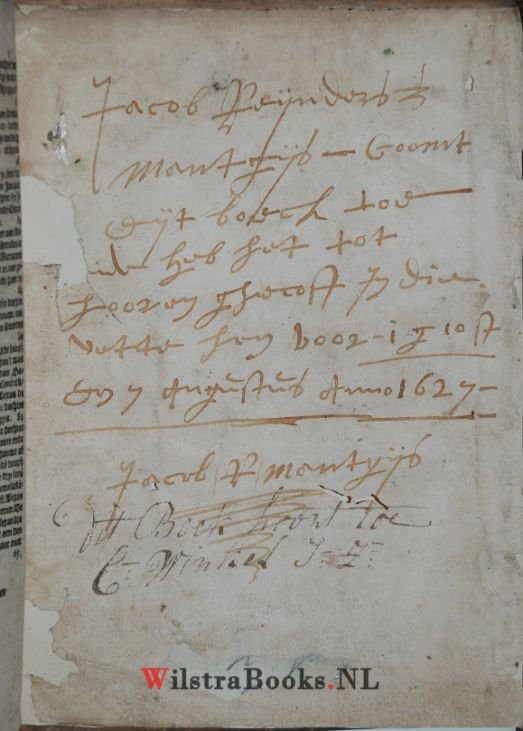 Jacob Reijnders
mantgijs – Coomt
dijt boeck toe
ick heb het tot
hooren ghecoft In die
vette hen voor - 1 g 10 st
den 7 Augustus Anno 1627 -
Jacob R mantgijs
dit Boek hoort toe
C= Winkel J= Z=
WilstraBooks.NL